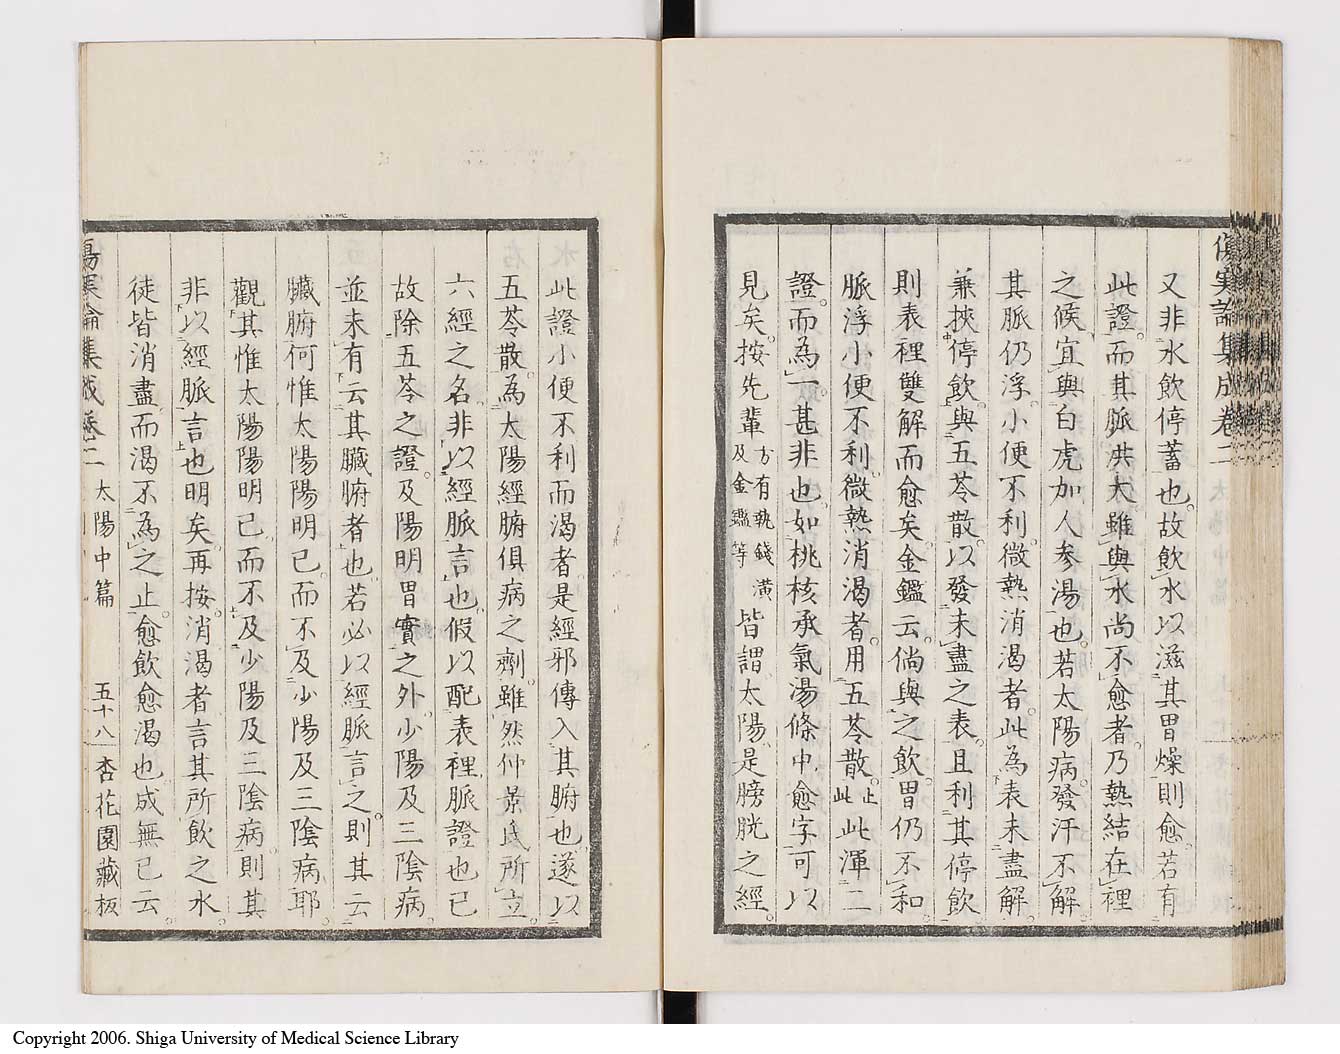 傷寒論集成卷二
又非水飲停蓄也故飲水以滋其胃燥則愈若有
此證而其脈洪大雖與水尚不愈者乃熱結在裡
之候宜與白虎加人參湯也若太陽病發汗不解
其脈仍浮小便不利微熱消渴者此為表未盡解
兼挾停飲與五苓散以發未盡之表且利其停飲
則表裡雙解而愈矣金鑑云倘與之飲胃仍不和
脈浮小便不利微熱消渴者用五苓散止此此渾二
證而為一甚非也如桃核承氣湯條中愈字可以
見矣按先輩方有執錢潢及金鑑等皆謂太陽是膀胱之經
此證小便不利而渴者是經邪傳入其腑也遂以
五苓散為太陽經腑俱病之劑雖然仲景氏所立
六經之名非以經脈言也假以配表裡脈證也已
故除五苓之證及陽明胃實之外少陽及三陰病
並未有云其臟腑者也若必以經脈言之則其云
臟腑何惟太陽陽明已而不及少陽及三陰病耶
觀其惟太陽陽明已而不及少陽及三陰病則其
非以經脈言也明矣再按消渴者言其所飲之水
徒皆消盡而渴不為之止愈飲愈渴也成無已云
傷寒論集成卷二 太陽中篇 五十八 杏花園藏板
Copyright 2006. Shiga University of Medical Science Library